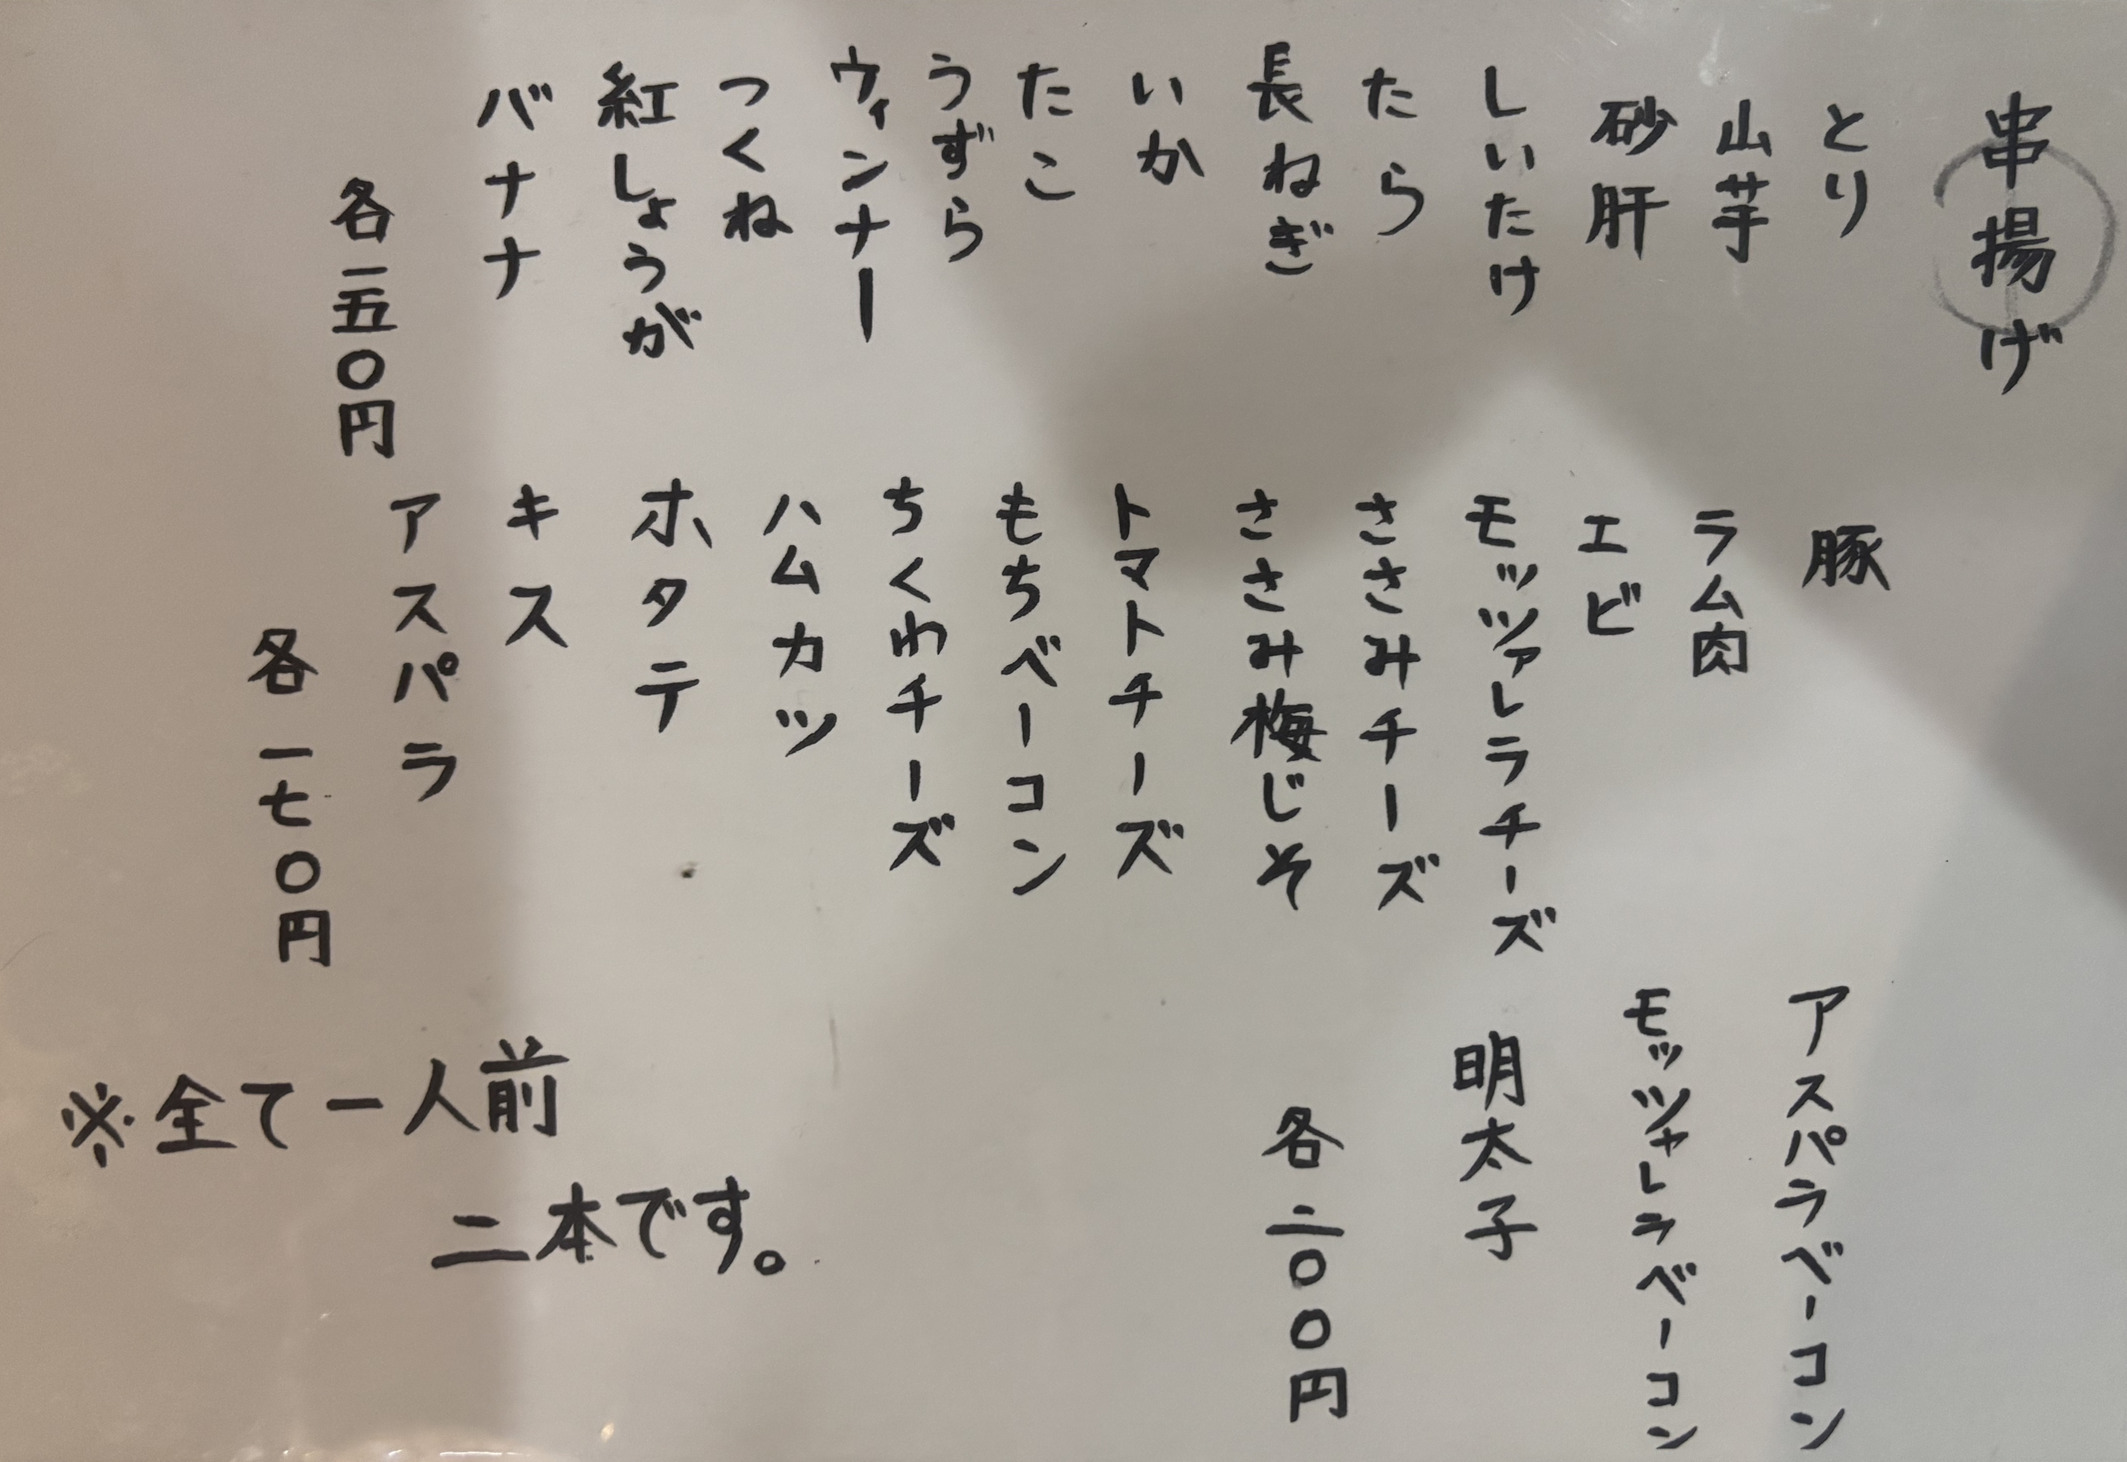 串揚げ
とり
山芋
砂肝
しいたけ
たら
長ねぎ
いか
たこ
うずら
ウィンナー
つくね
紅しょうが
バナナ
各一五〇円
豚
ラム肉
エビ
モッツァレラチーズ
ささみチーズ
ささみ梅じそ
トマトチーズ
もちベーコン
ちくわチーズ
ハムカツ
ホタテ
キス
アスパラ
各一七〇円
アスパラベーコン
モッツャレラベーコン
明太子
各二〇〇円
※全て一人前
二本です。